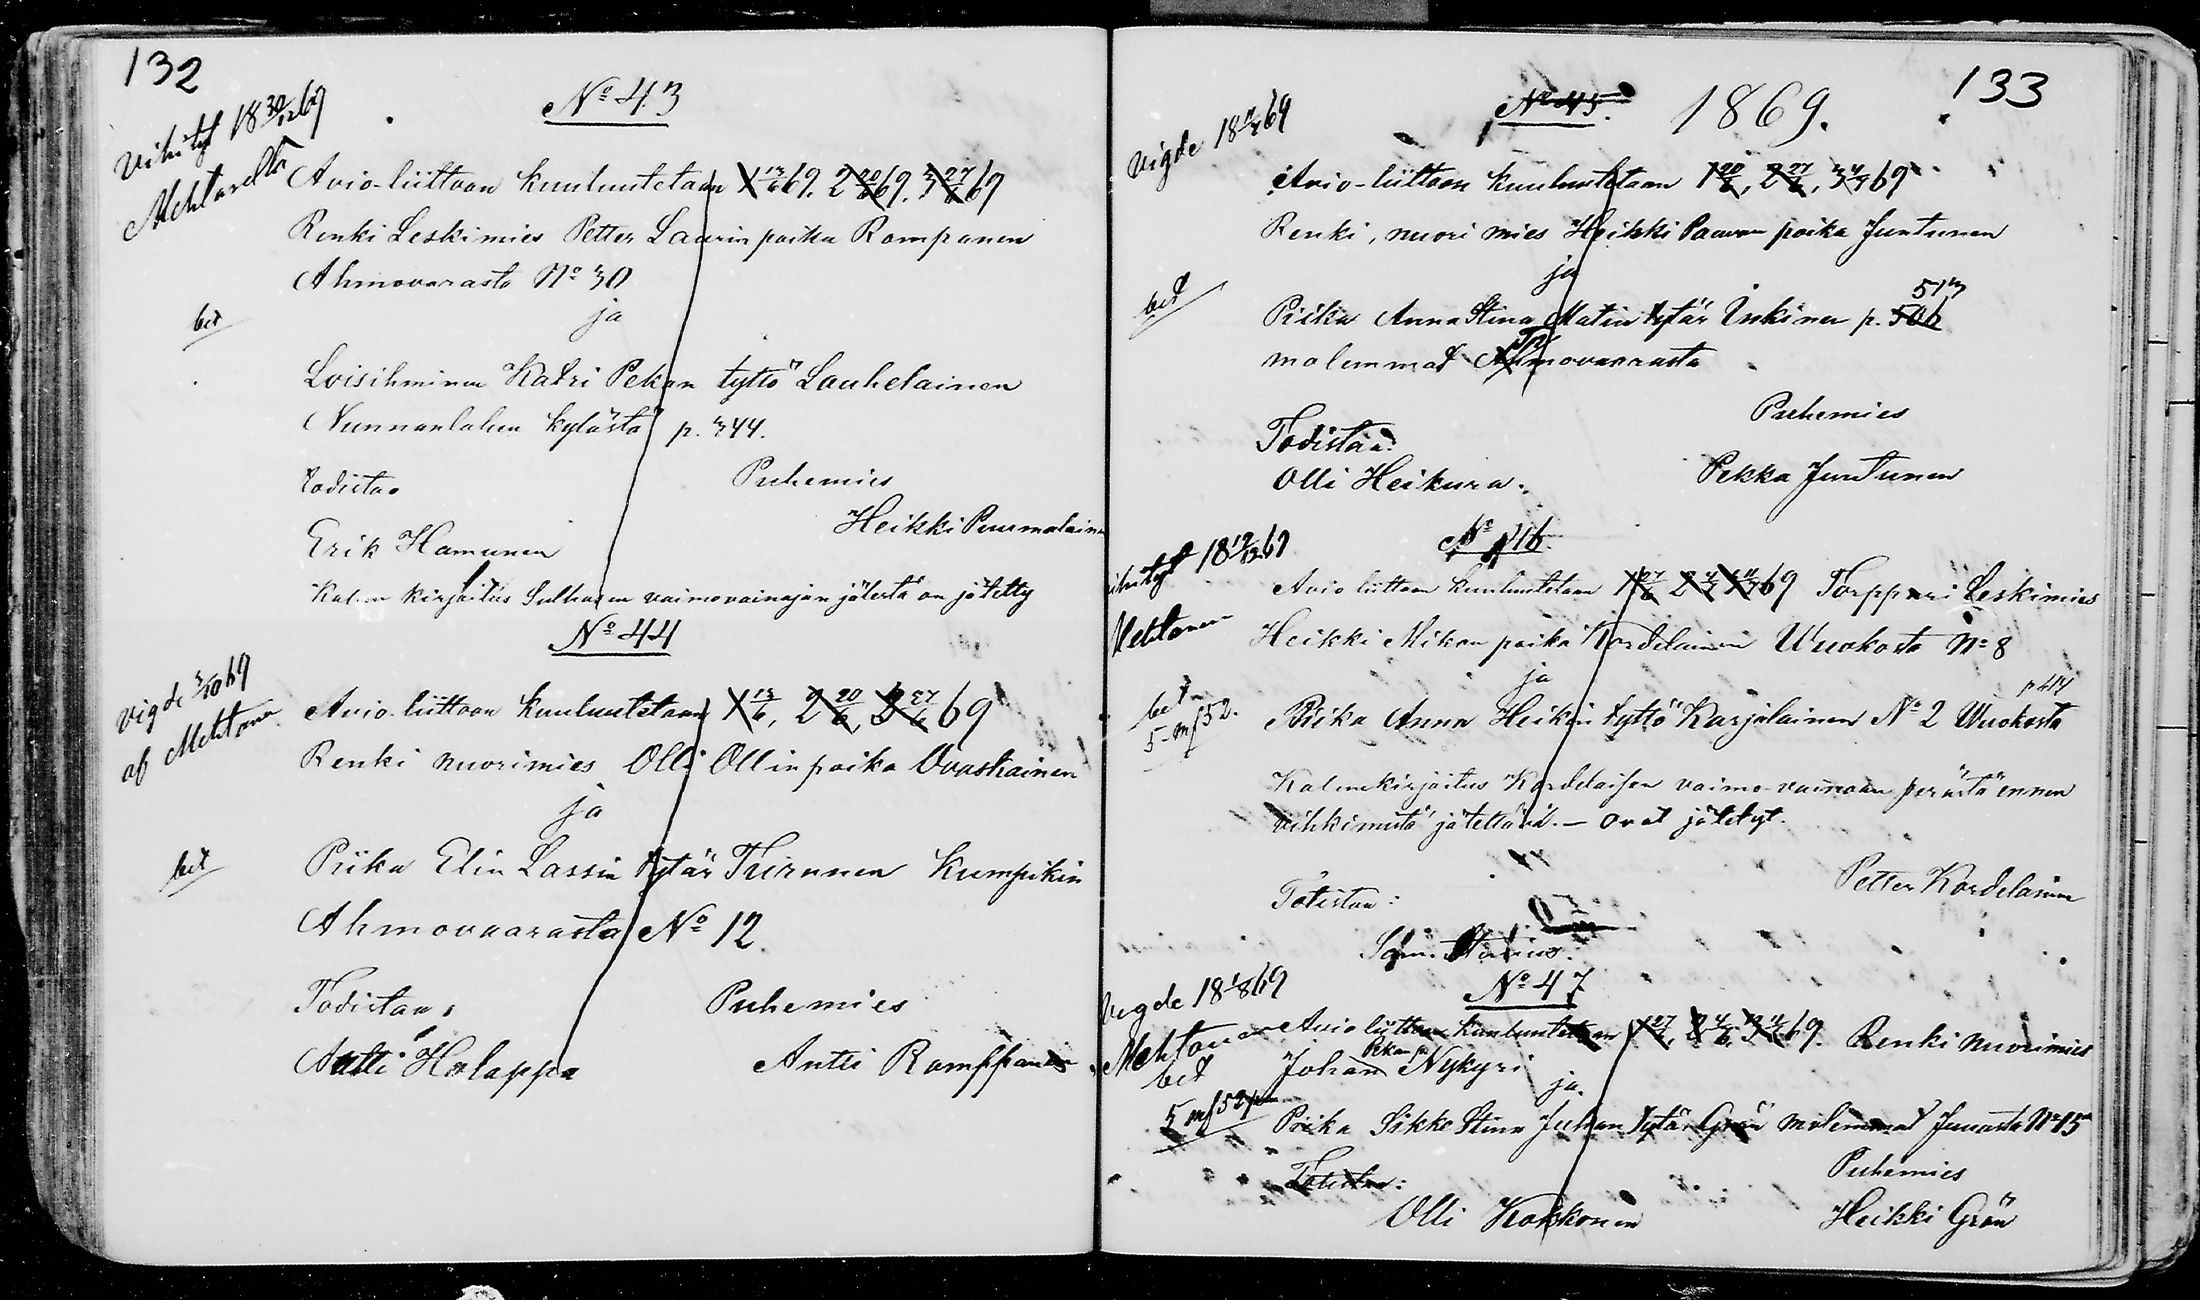 132
No 43
Vihityt 18 30/12 69
Mehtoselta
Avio-liittoon kuulutetaan 1 13/6 69. 2 20/6 69. 3 27/6 69
Renki Leskimies Petter Laurin poika Rompanen
Ahmovarasta No 30
bet
ja
Loisihminen Katri Pekan tyttö Lauhelainen
Nunnanlahen kylästä p. 344.
todistaa
Puhemies
Heikki Puurmalainen
Erik Hamunen
Kalun kirjoitus Sulhasen vaimovainajan jälestä on jätetty
No 44
vigde 3/10 69
af Mehtonen
Avio-liittoon kuulutetaan 1 13/6, 2 20/6, 3 27/6 69
Renki nuorimies Olli Ollin poika Ovaskainen
ja
bet
Piika Elin Lassin tytär Turunen Kumpikin
Ahmovaarasta No 12
Todistaa:
Puhemies
Antti Holappa
Antti Romppanen
133
No 45.
1869.
vigde 18 11/7 69
Avio-liittoon kuulutetaan 1 20/6, 2 27/6, 3 4/7 69
Renki, nuori mies Heikki Paavon poika Juntunen
ja
bet
513
Piika Anna Stina Matin tytär Inkinen p. 506
molemmat Ahmovaarasta
Puhemies
Todistaa:
Olli Heikura.
Pekka Juntunen
No 46.
vihityt 18 19/12 69
Mehtonen
Avio liittoon kuulutetaan 1 27/6 2 4/7 3 11/7 69 Torppari Leskimies
Heikki Mikon poika Kordelainen Wuokosta No 8
ja
bet
5 mf 52.
p 414
Piika Anna Heikin tyttö Karjalainen No 2 Wuokosta
Kalunkirjoitus Kordelaisen vaimo-vainaan perästä ennen
vihkimistä jätettävä. — ovat jätetyt.
Petter Kordelainen
Totistaa:
No 47
Vigde 18 1/8 69
Mehtonen
bet
5 mf 52 pn
Avio liittoon kuulutetaan 1 27/6, 2 4/7, 3 11/7 69. Renki nuorimies
Pekan p
Johan Nykyri
ja
Piika Sikke Stina Juhan tytär Grön molemmat Juuasta No 15
Totistaa:
Puhemies
Olli Kokkonen
Heikki Grön